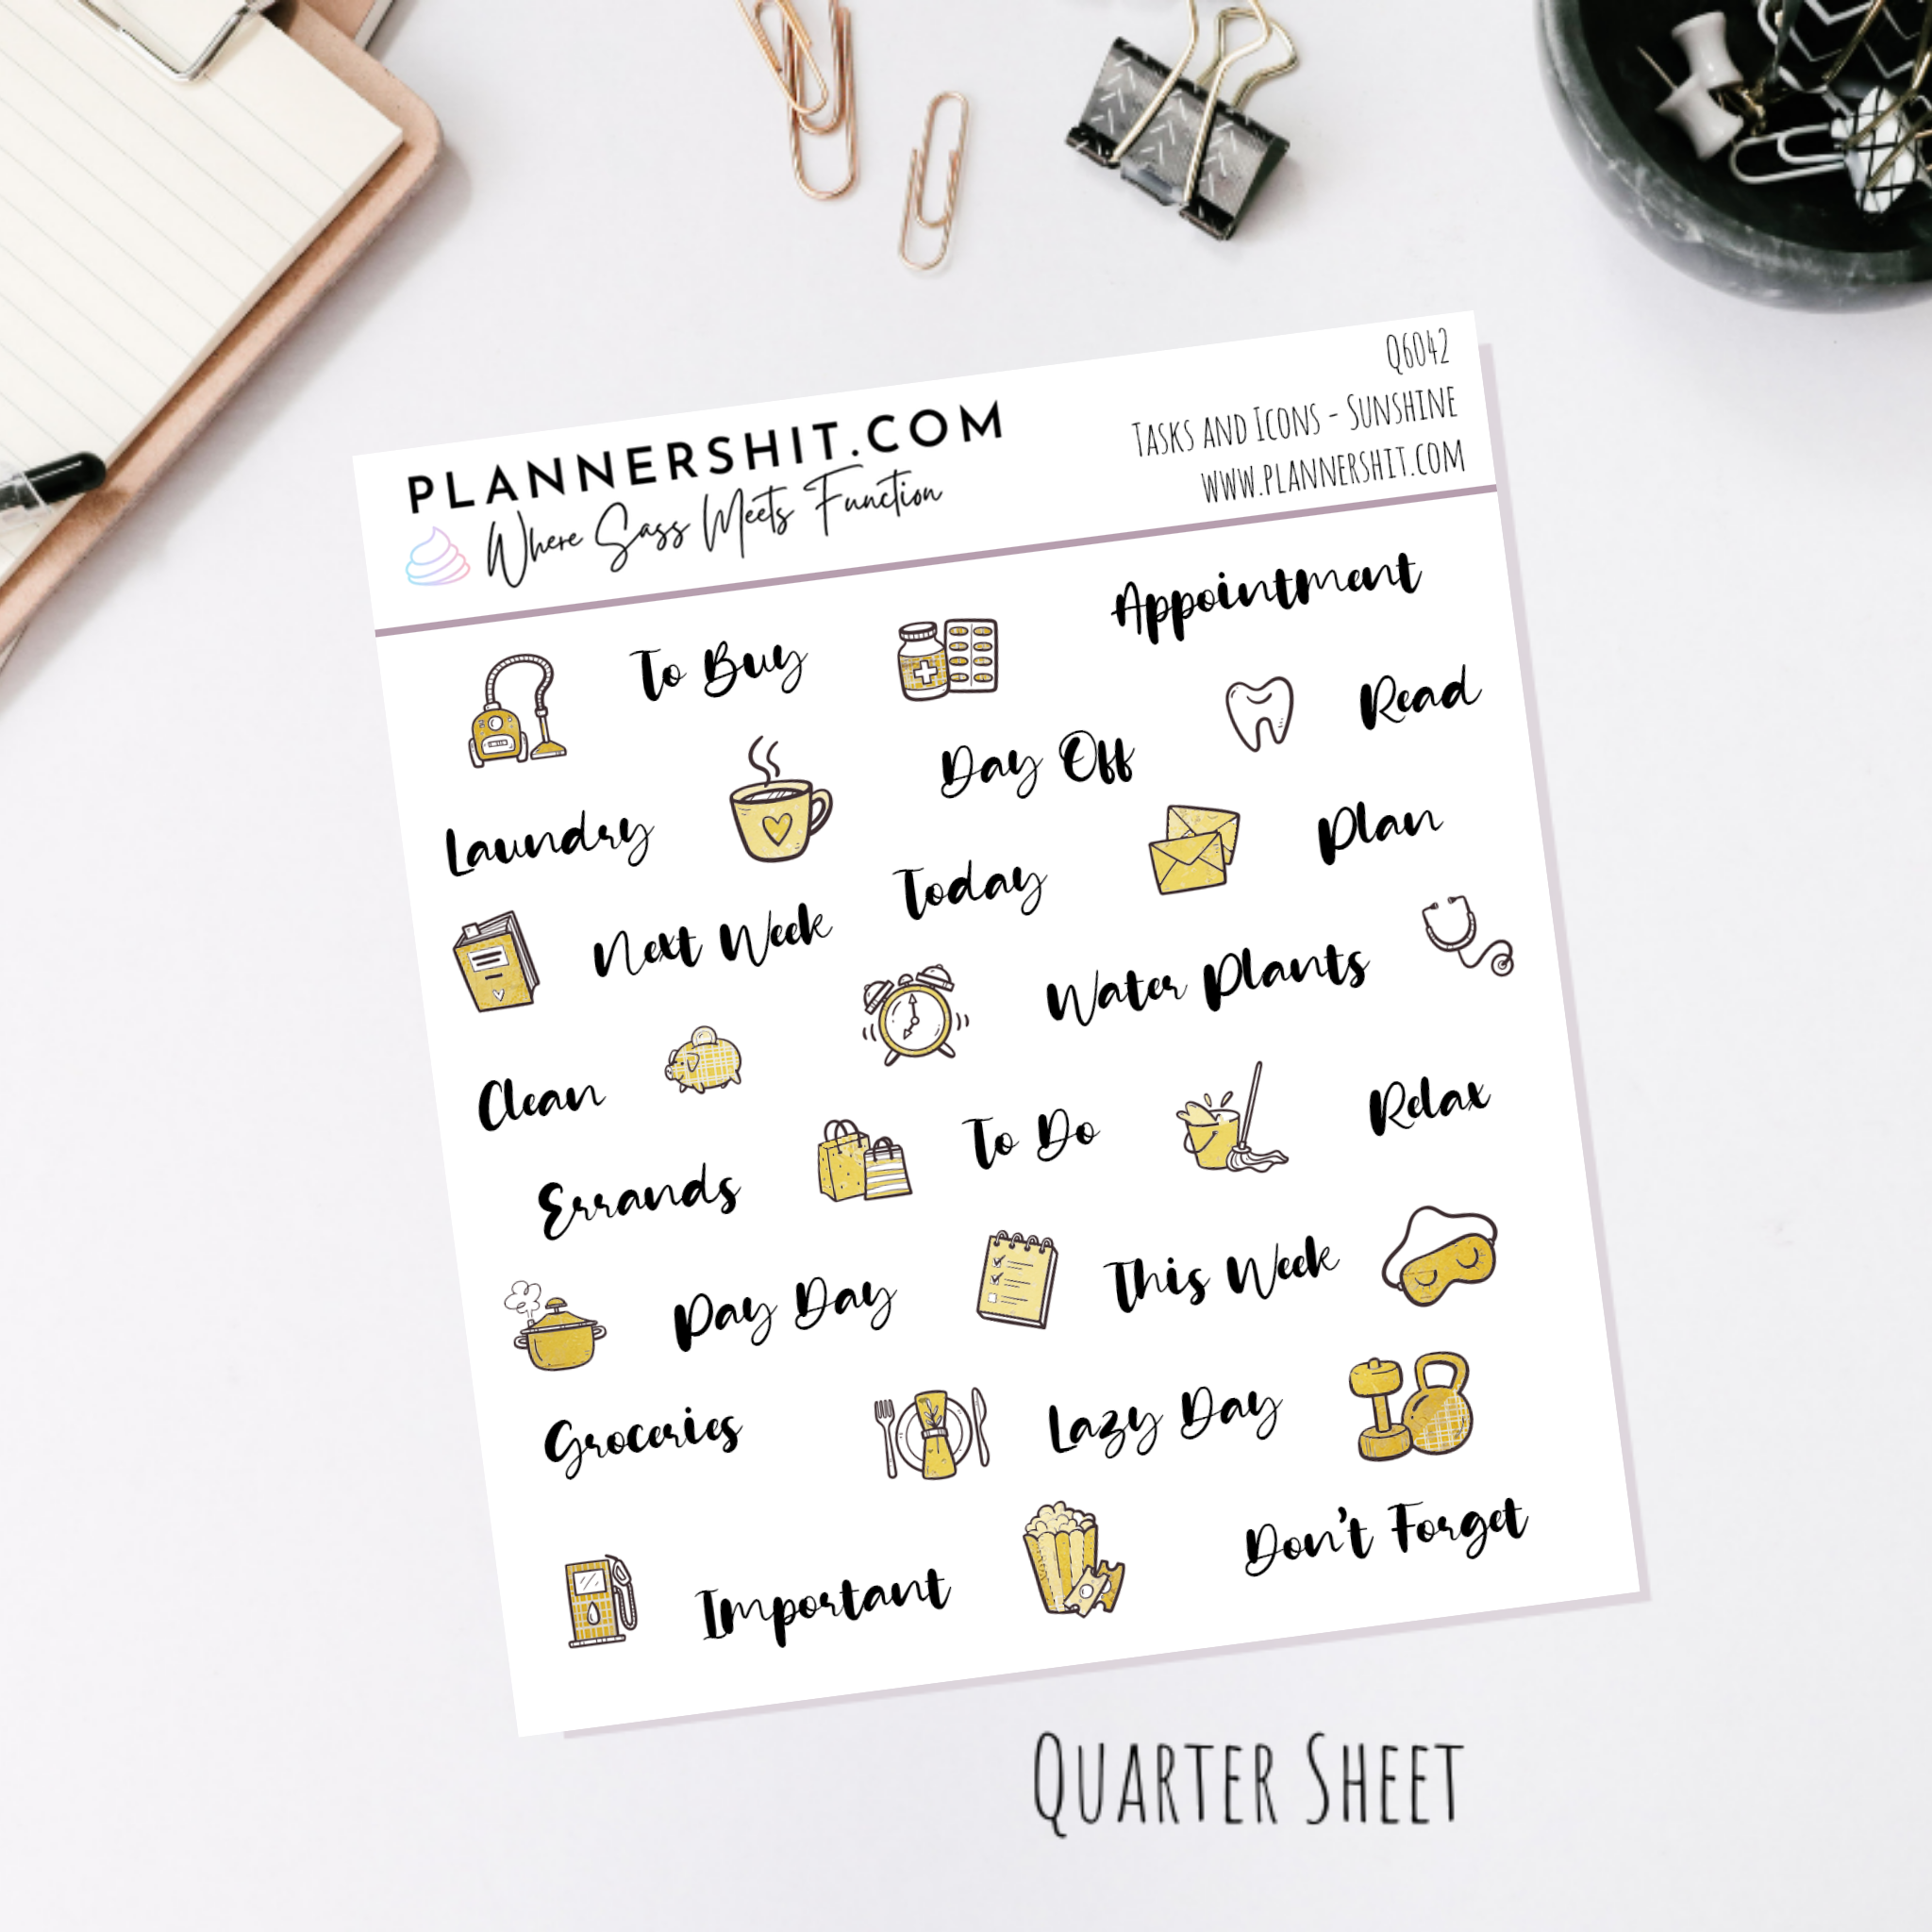 PLANNERSHIT.COM
Where Sass Meets Function
Q6042
Tasks and Icons - Sunshine
www.plannershit.com
To Buy
Appointment
Read
Day Off
Laundry
Plan
Today
Next Week
Water Plants
Clean
To Do
Relax
Errands
This Week
Pay Day
Lazy Day
Groceries
Don't Forget
Important
Quarter Sheet